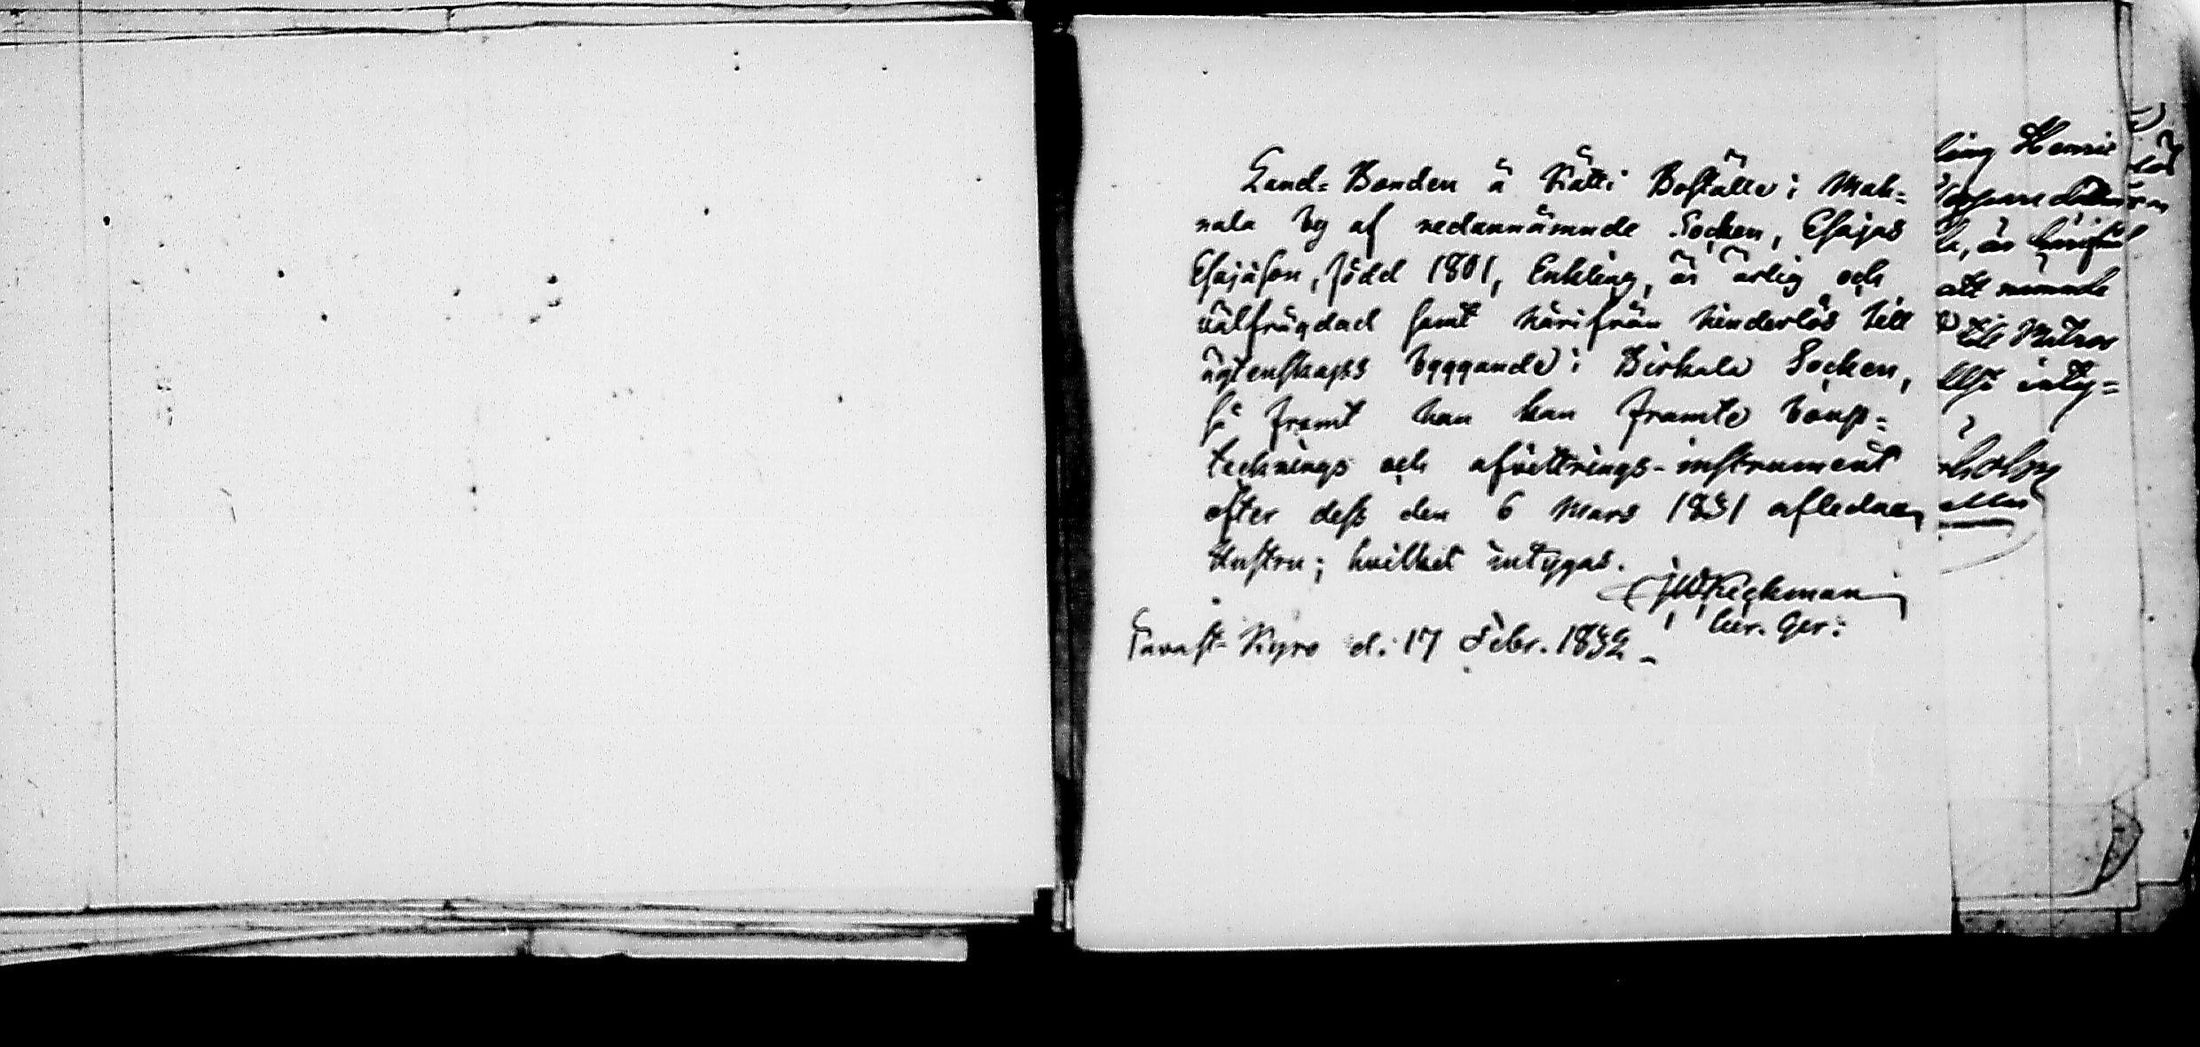 Land-Bonden å Kätti Boställe i Mah-
nala by af nedannämnde Socken, Esajas
Esajäson, född 1801, Enkling, är ärlig och
välfrägdad samt härifrån hinderlös till
ägtenskaps byggande i Birkala Socken,
så framt han kan framte boup-
tecknings och afvittrings-instrument
efter dess den 6 Mars 1831 aflednae
Hustru; hvilket intygas.
JWKeckman
Cur. Ger:
Tavast-Kyro d. 17 Febr. 1832
ling Henric
är härifrån
att nämnde
till
intyg-
holm